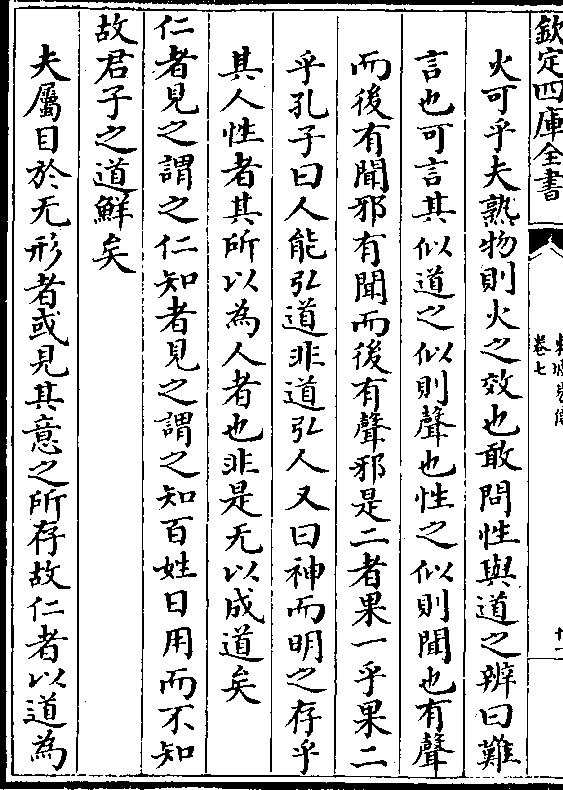 欽定四庫全書
卷七
火可乎夫熟物則火之效也敢問性與道之辨曰難
言也可言其似道之似則聲也性之似則聞也有聲
而後有聞邪有聞而後有聲邪是二者果一乎果二
乎孔子曰人能弘道非道弘人又曰神而明之存乎
其人性者其所以為人者也非是无以成道矣
仁者見之謂之仁知者見之謂之知百姓日用而不知
故君子之道鮮矣
夫屬目於无形者或見其意之所存故仁者以道為